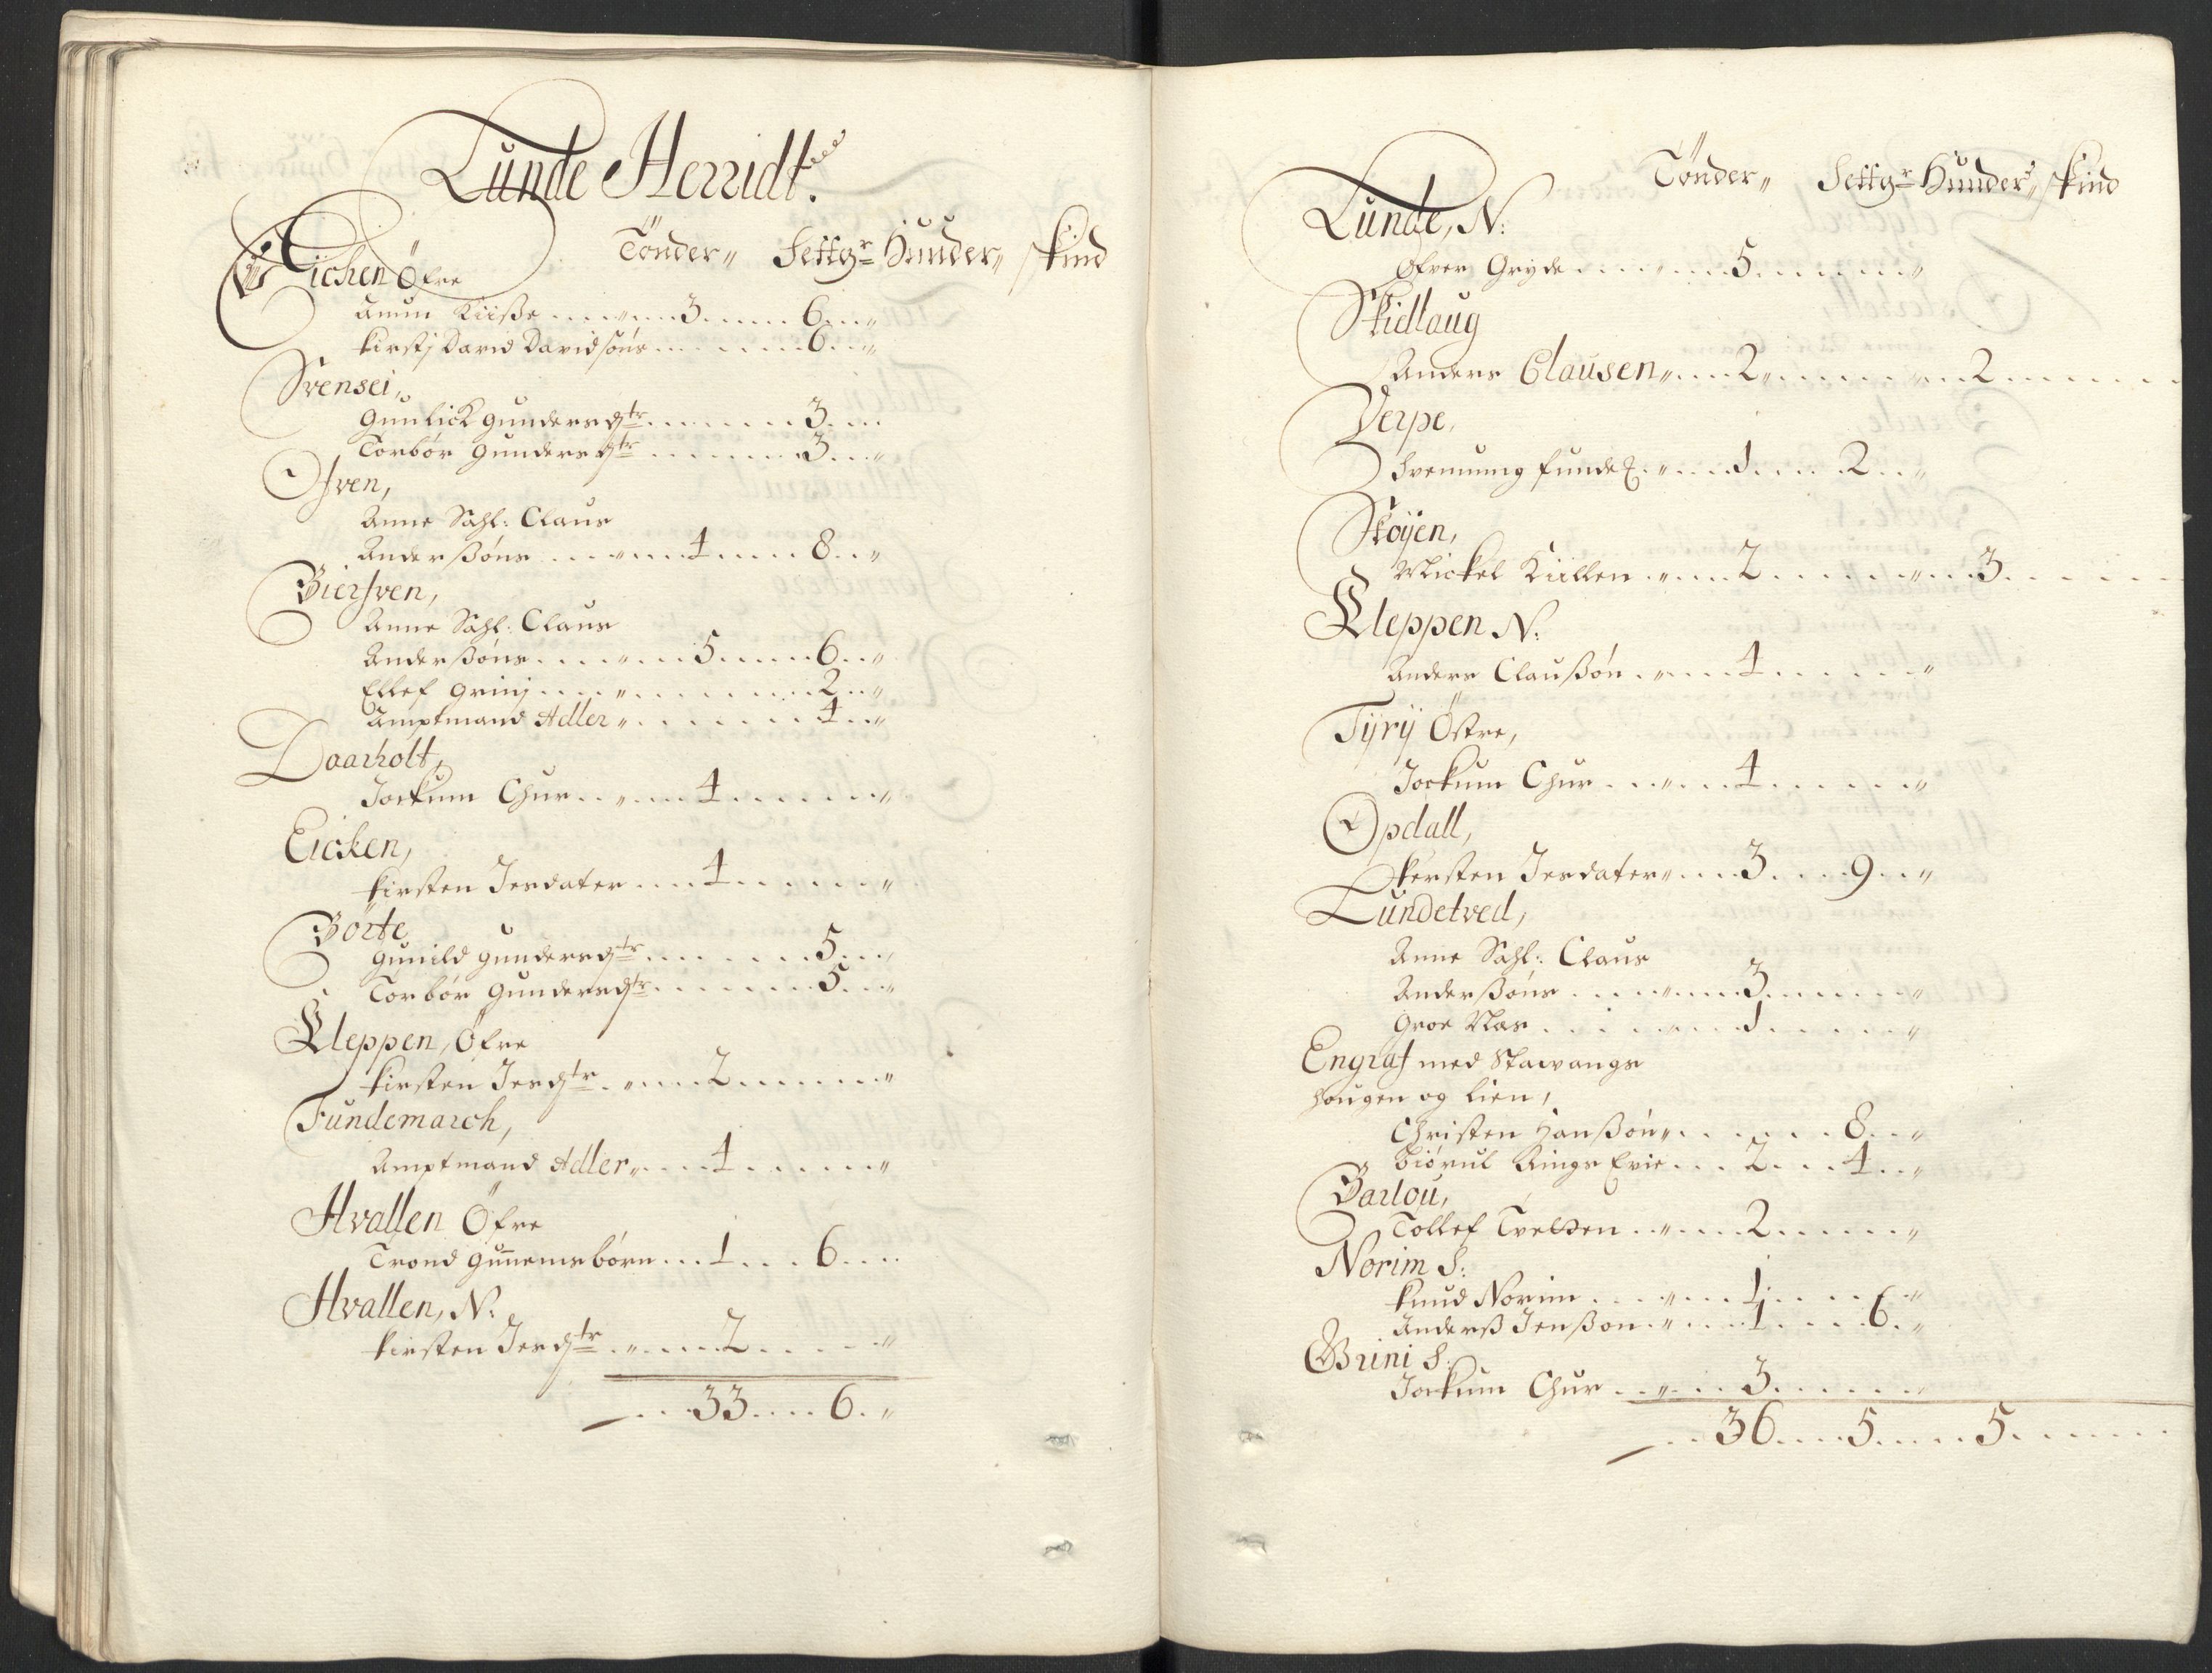 Lunde Herridt.
Tønder„ Settgr Hunder„ skind
Eichen Öfre
Amun Kiiße ... „ ... 3 ... 6 ... „
Kirstj David Davidsøns ... 6 ... „
Svensei,
Gunlick gundersdtr ... 3 ...
Torbør Gundersdtr ... 3 ... „
Ifven,
Anne Sahl: Claus
Anderßøns ... „ ... 4 ... 8 ... „
Bierfven,
Anne Sahl: Claus
Anderßøns ... „ ... 5 ... 6 ... „
Ellef grinj ... „ ... 2 ... „
Amptmand Adler „ ... 4 ... „
Daarholt,
Jockum Chur ... „ ... 4 ... „
Eicken,
Kirsten Jesdater ... 4 ... „
Börte
Gunild gundersdtr ... 5 ... „
Torbør Gundersdtr ... 5 ... „
Kleppen, Öfre
Kirsten Jesdtr „ ... 2 ... „
Fundemarch,
Amptmand Adler „ ... 4 ... „
Hvallen Öfre
Trond gunnemsbørn ... 1 ... 6 ...
Hvallen, N:
Kirsten Jesdtr „ ... 2 ... „
33 ... 6 „
Tønder„ Settgr Hunder„ skind
Lunde, N:
Øfver Gryde ... „ ... 5 ... „
Skidlaug
Anders Clausen „ ... 2 „ ... „ ... 2 ...
Verpe,
Svenning funde ... „ ... 1 ... 2 ... „
Skøyen,
Mickel Kiillen „ ... 2 ... „ ... 3 ...
Kleppen N:
Anders Claußøn „ ... 4 ... „
Tÿrÿ Östre,
Jockum Chur ... „ ... 4 ... „
Opdall,
Kersten Jesdater „ ... 3 ... 9 ... „
Lundetved,
Anne Sahl: Claus
Anderßøns ... „ ... 3 ... „
Groe Næs ... 1 ... „
Engraf med Stawangs
hougen og Lien,
Christen Hanßøn „ ... 8 ... „
Biørnl Rings Evie ... 2 ... 4 ... „
Barlou,
Tollef Tvetten ... „ ... 2 ... „
Norim S:
Knud Norim ... „ ... 1 ... „
Anderß Jenßøn „ ... 1 ... 6 „
Grini S:
Jockum Chur ... „ ... 3 ...
36 ... 5 ... 5 ...